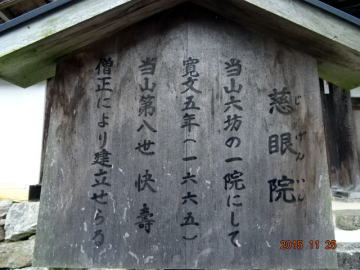 慈眼院
じげんいん
当山六坊の一院にして
寛文五年(一六六五)
当山第八世 快壽
僧正により建立せらる
2015 11 25